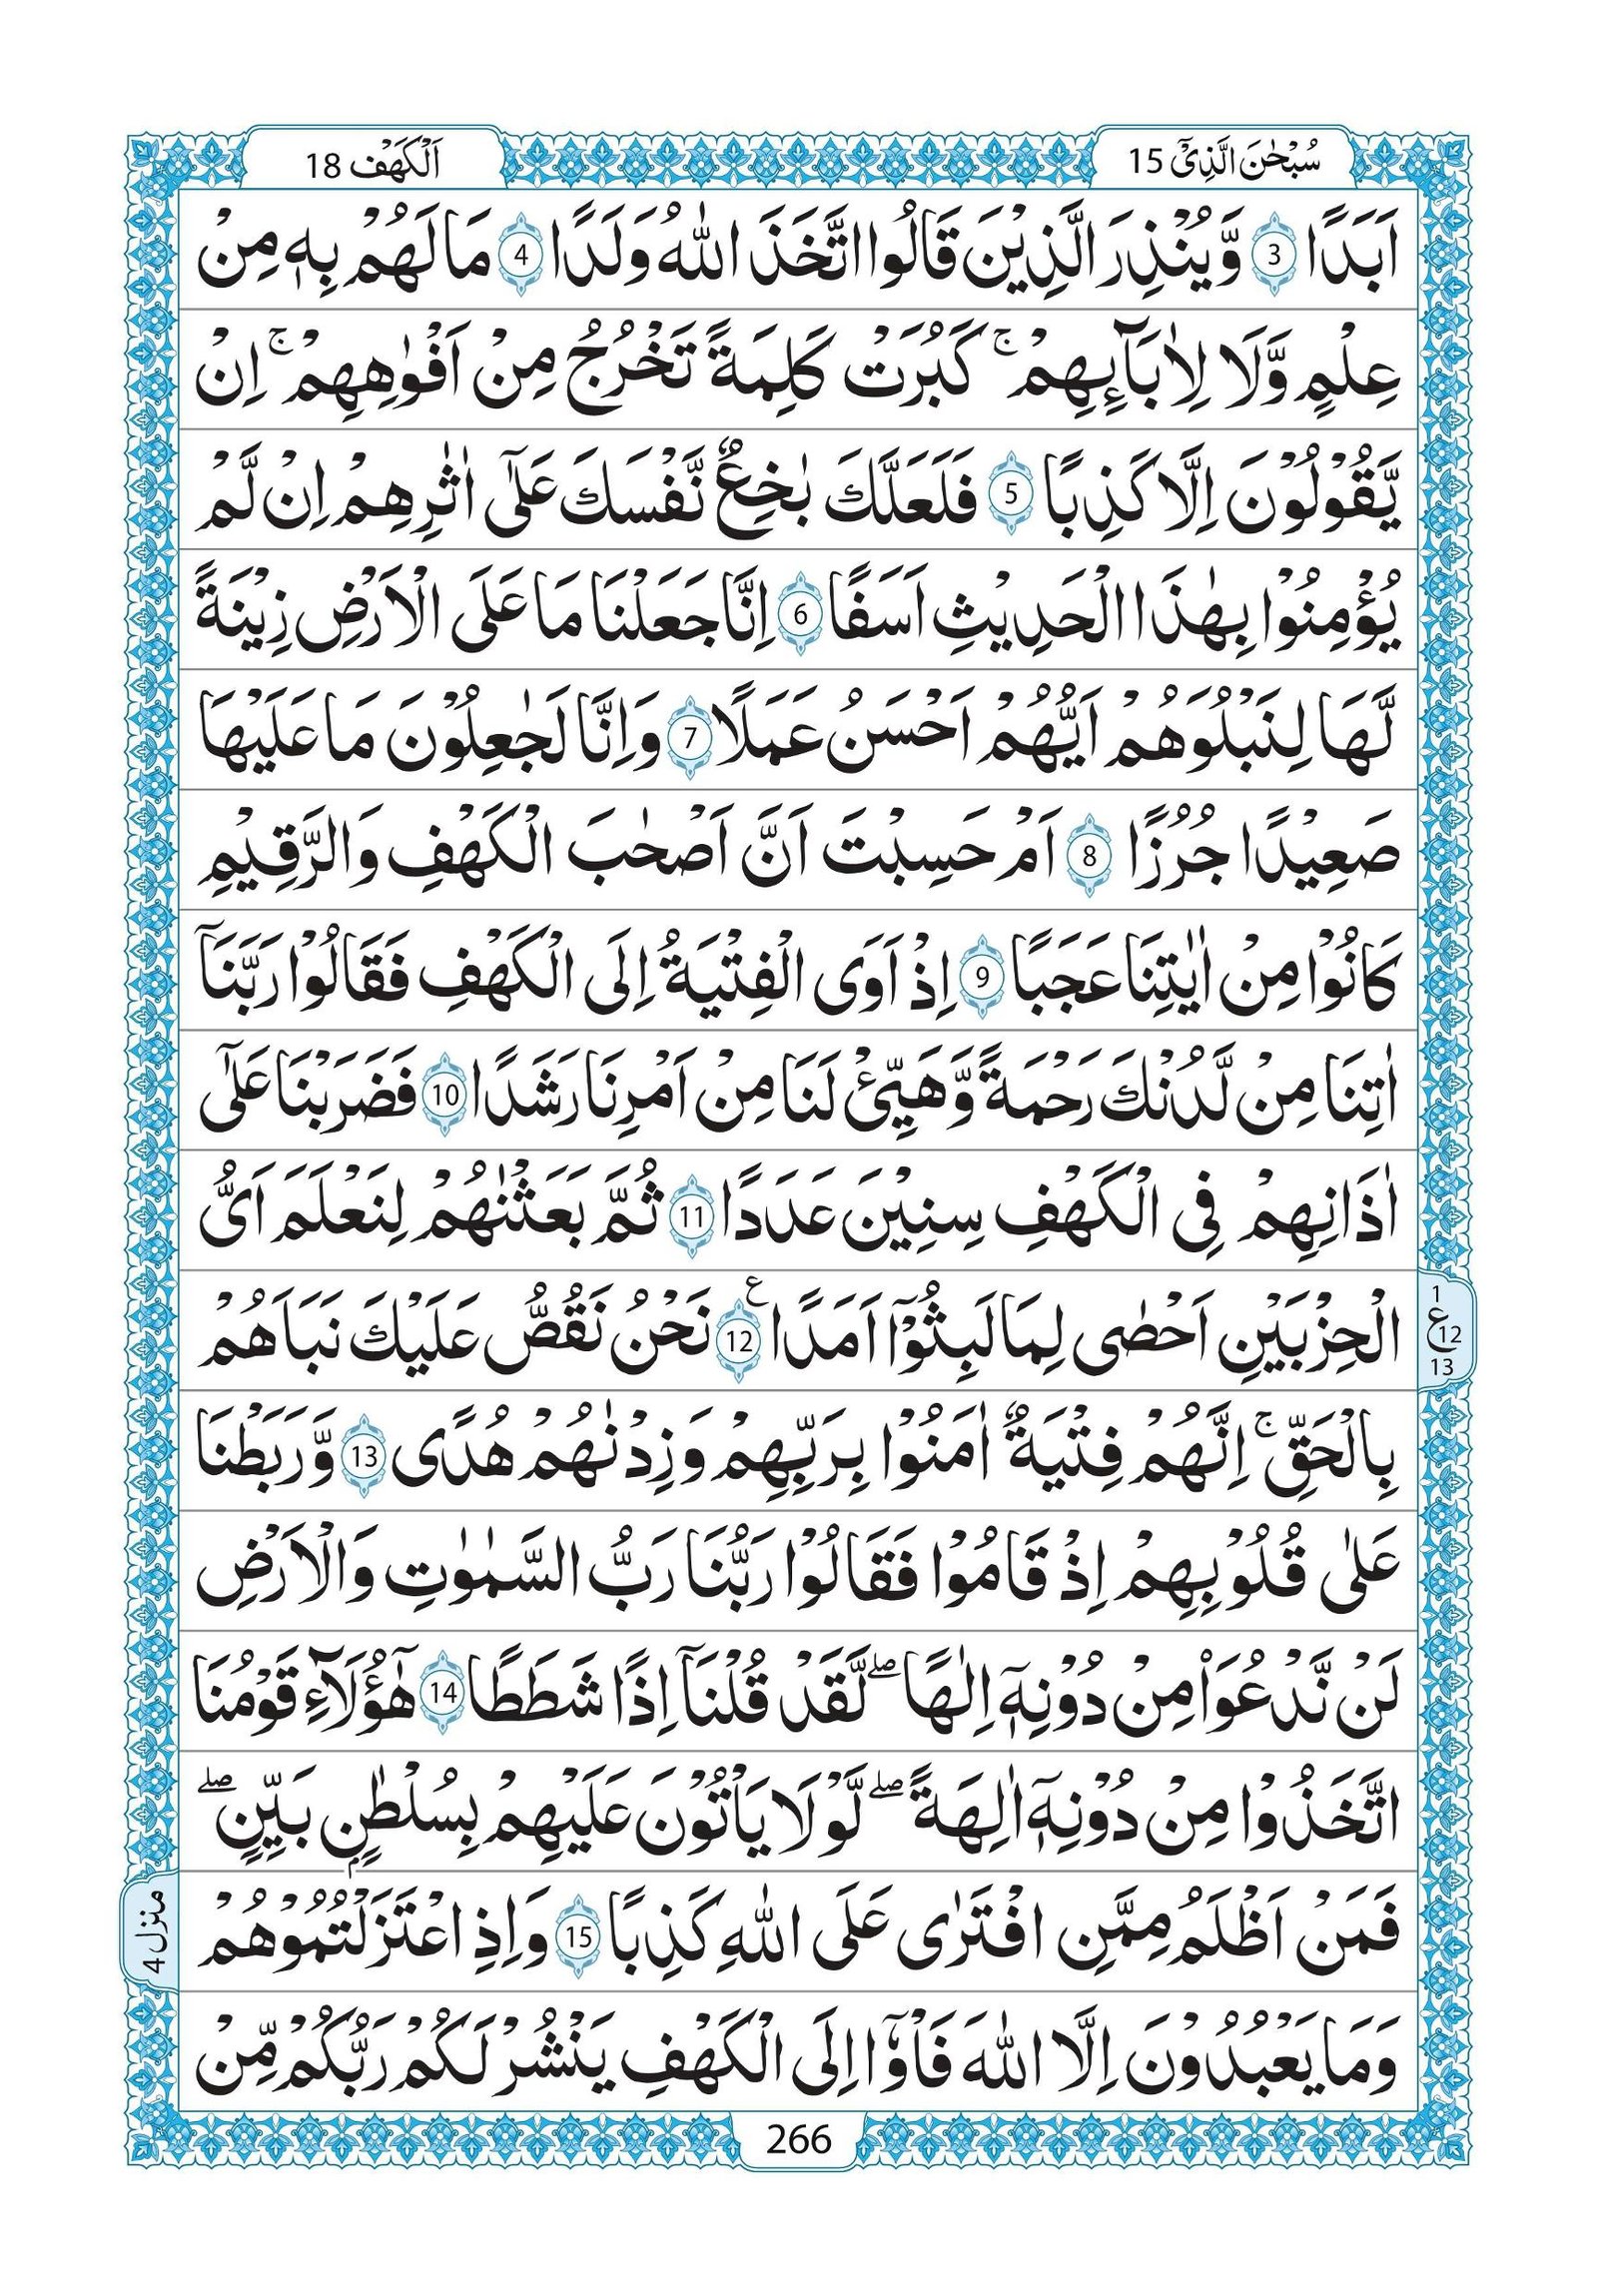 سُبْحٰنَ الَّذِیْۤ 15
اَلْكَهْف 18
اَبَدًا 3 وَّیُنْذِرَ الَّذِیْنَ قَالُوا اتَّخَذَ اللّٰهُ وَلَدًا 4 مَا لَهُمْ بِهٖ مِنْ
عِلْمٍ وَّلَا لِاٰبَآىِٕهِمْ ۚ كَبُرَتْ كَلِمَةً تَخْرُجُ مِنْ اَفْوٰهِهِمْ ۚ اِنْ
یَّقُوْلُوْنَ اِلَّا كَذِبًا 5 فَلَعَلَّكَ بٰخِعٌ نَّفْسَكَ عَلٰۤی اٰثٰرِهِمْ اِنْ لَّمْ
یُؤْمِنُوْا بِهٰذَا الْحَدِیْثِ اَسَفًا 6 اِنَّا جَعَلْنَا مَا عَلَی الْاَرْضِ زِیْنَةً
لَّهَا لِنَبْلُوَهُمْ اَیُّهُمْ اَحْسَنُ عَمَلًا 7 وَاِنَّا لَجٰعِلُوْنَ مَا عَلَیْهَا
صَعِیْدًا جُرُزًا 8 اَمْ حَسِبْتَ اَنَّ اَصْحٰبَ الْكَهْفِ وَالرَّقِیْمِ
كَانُوْا مِنْ اٰیٰتِنَا عَجَبًا 9 اِذْ اَوَی الْفِتْیَةُ اِلَی الْكَهْفِ فَقَالُوْا رَبَّنَاۤ
اٰتِنَا مِنْ لَّدُنْكَ رَحْمَةً وَّهَیِّئْ لَنَا مِنْ اَمْرِنَا رَشَدًا 10 فَضَرَبْنَا عَلٰۤی
اٰذَانِهِمْ فِی الْكَهْفِ سِنِیْنَ عَدَدًا 11 ثُمَّ بَعَثْنٰهُمْ لِنَعْلَمَ اَیُّ
الْحِزْبَیْنِ اَحْصٰی لِمَا لَبِثُوْۤا اَمَدًا 12 ع نَحْنُ نَقُصُّ عَلَیْكَ نَبَاَهُمْ
1 ع 12 13
بِالْحَقِّ ۚ اِنَّهُمْ فِتْیَةٌ اٰمَنُوْا بِرَبِّهِمْ وَزِدْنٰهُمْ هُدًی 13 وَّرَبَطْنَا
عَلٰی قُلُوْبِهِمْ اِذْ قَامُوْا فَقَالُوْا رَبُّنَا رَبُّ السَّمٰوٰتِ وَالْاَرْضِ
لَنْ نَّدْعُوَا۟ مِنْ دُوْنِهٖۤ اِلٰهًا ۖ لَّقَدْ قُلْنَاۤ اِذًا شَطَطًا 14 هٰۤؤُلَآءِ قَوْمُنَا
اتَّخَذُوْا مِنْ دُوْنِهٖۤ اٰلِهَةً ۖ لَّوْلَا یَاْتُوْنَ عَلَیْهِمْ بِسُلْطٰنٍۭ بَیِّنٍ ۖ
فَمَنْ اَظْلَمُ مِمَّنِ افْتَرٰی عَلَی اللّٰهِ كَذِبًا 15 وَاِذِ اعْتَزَلْتُمُوْهُمْ
منزل 4
وَمَا یَعْبُدُوْنَ اِلَّا اللّٰهَ فَاْوٗۤا اِلَی الْكَهْفِ یَنْشُرْ لَكُمْ رَبُّكُمْ مِّنْ
266